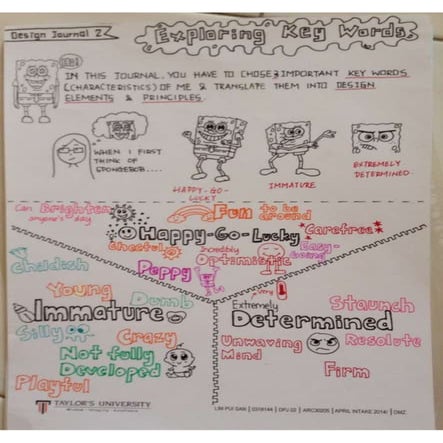 Design Journal 2
Exploring Key Words
Hi!
IN THIS JOURNAL, YOU HAVE TO CHOSE 3 IMPORTANT KEY WORDS
(CHARACTERISTICS) OF ME & TRANSLATE THEM INTO DESIGN
ELEMENTS & PRINCIPLES.
WHEN I FIRST
THINK OF
SPONGEBOB....
HAPPY-GO-
LUCKY
IMMATURE
EXTREMELY
DETERMINED
Can Brighten
anyone's day
Fun to be
around
Happy-Go-Lucky
*Carefree*
Cheerful
Incredibly
Optimistic
Easy-
Going
Peppy
Childish
Young
Dumb
Immature
Silly
Crazy
Not fully
Developed
Playful
Very
Extremely
Determined
Staunch
Unwaving
Mind
Resolute
Firm
TAYLOR'S UNIVERSITY
Wisdom · Integrity · Excellence
LIM PUI SAN | 0319144 | DFJ 02 | ARC30205 | APRIL INTAKE 2014/ | DMZ